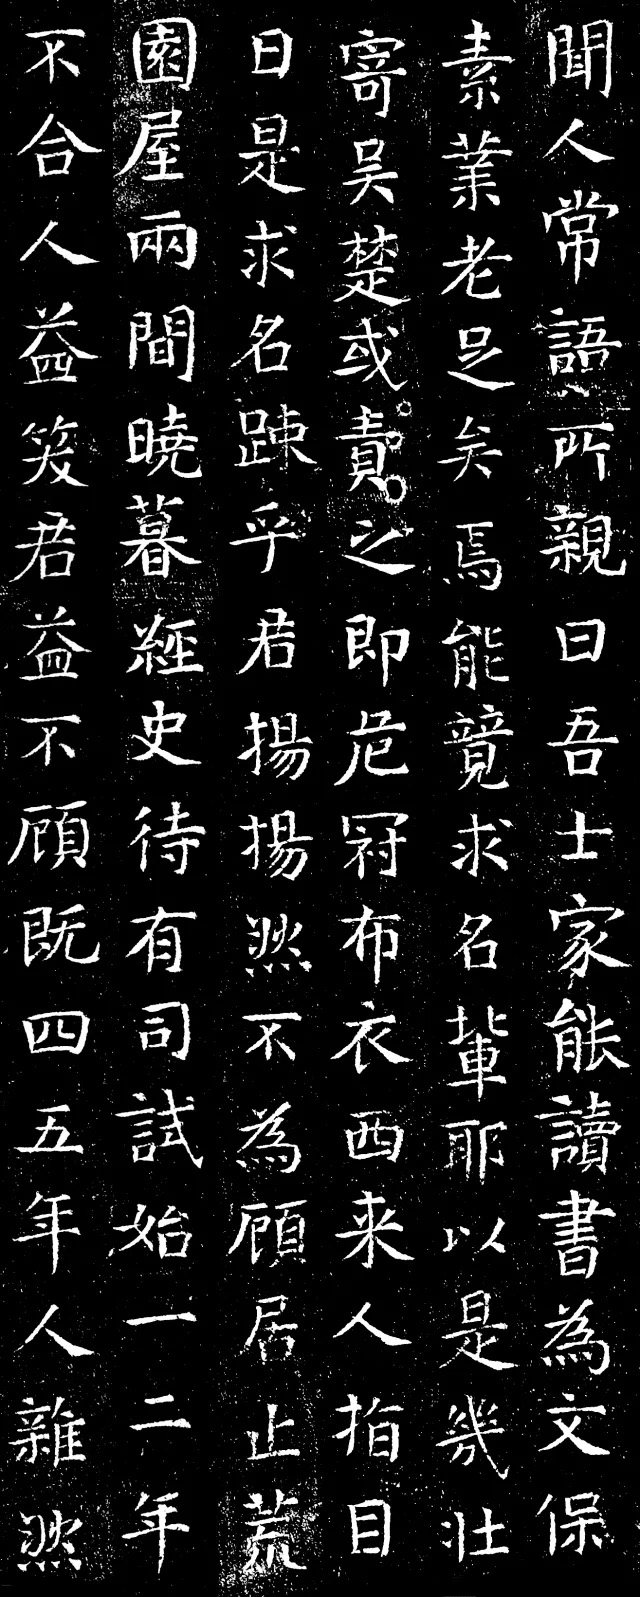 聞人常語所親曰吾士家能讀書為文保
素業老足矣焉能競求名輩耶以是幾壯
寄吴楚或責之即危冠布衣西来人指目
曰是求名踈乎君揚揚然不為顧居止荒
園屋兩間曉暮經史待有司試始一二年
不合人益笑君益不顧既四五年人雜然